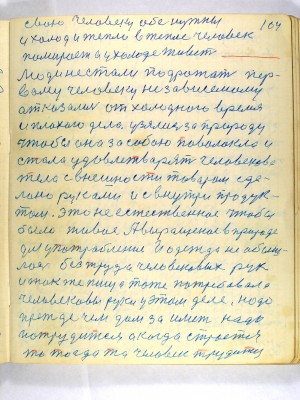 свою человеку обе нужны 104
и холод и тепло в тепле человек
помирает а у холоде живет
Люди нестали подрожат пер-
вому человеку независемому
отказалис от холодного время
и плохого дела. узялис за природу
чтобы она за собою поволокла и
стала удовлетварят человеково
тело с внешности товаром сде-
лано руками и с внутри продук-
том. Это не естественное чтобы
было живое А выращеное в природе
для употрабления И одежда не обош-
лас без труда человековых рук
и также пища тоже потребовала
человековы руки у этом деле. надо
прежде чем дом заимет надо
потрудится а когда строется
то тогда та человек трудится